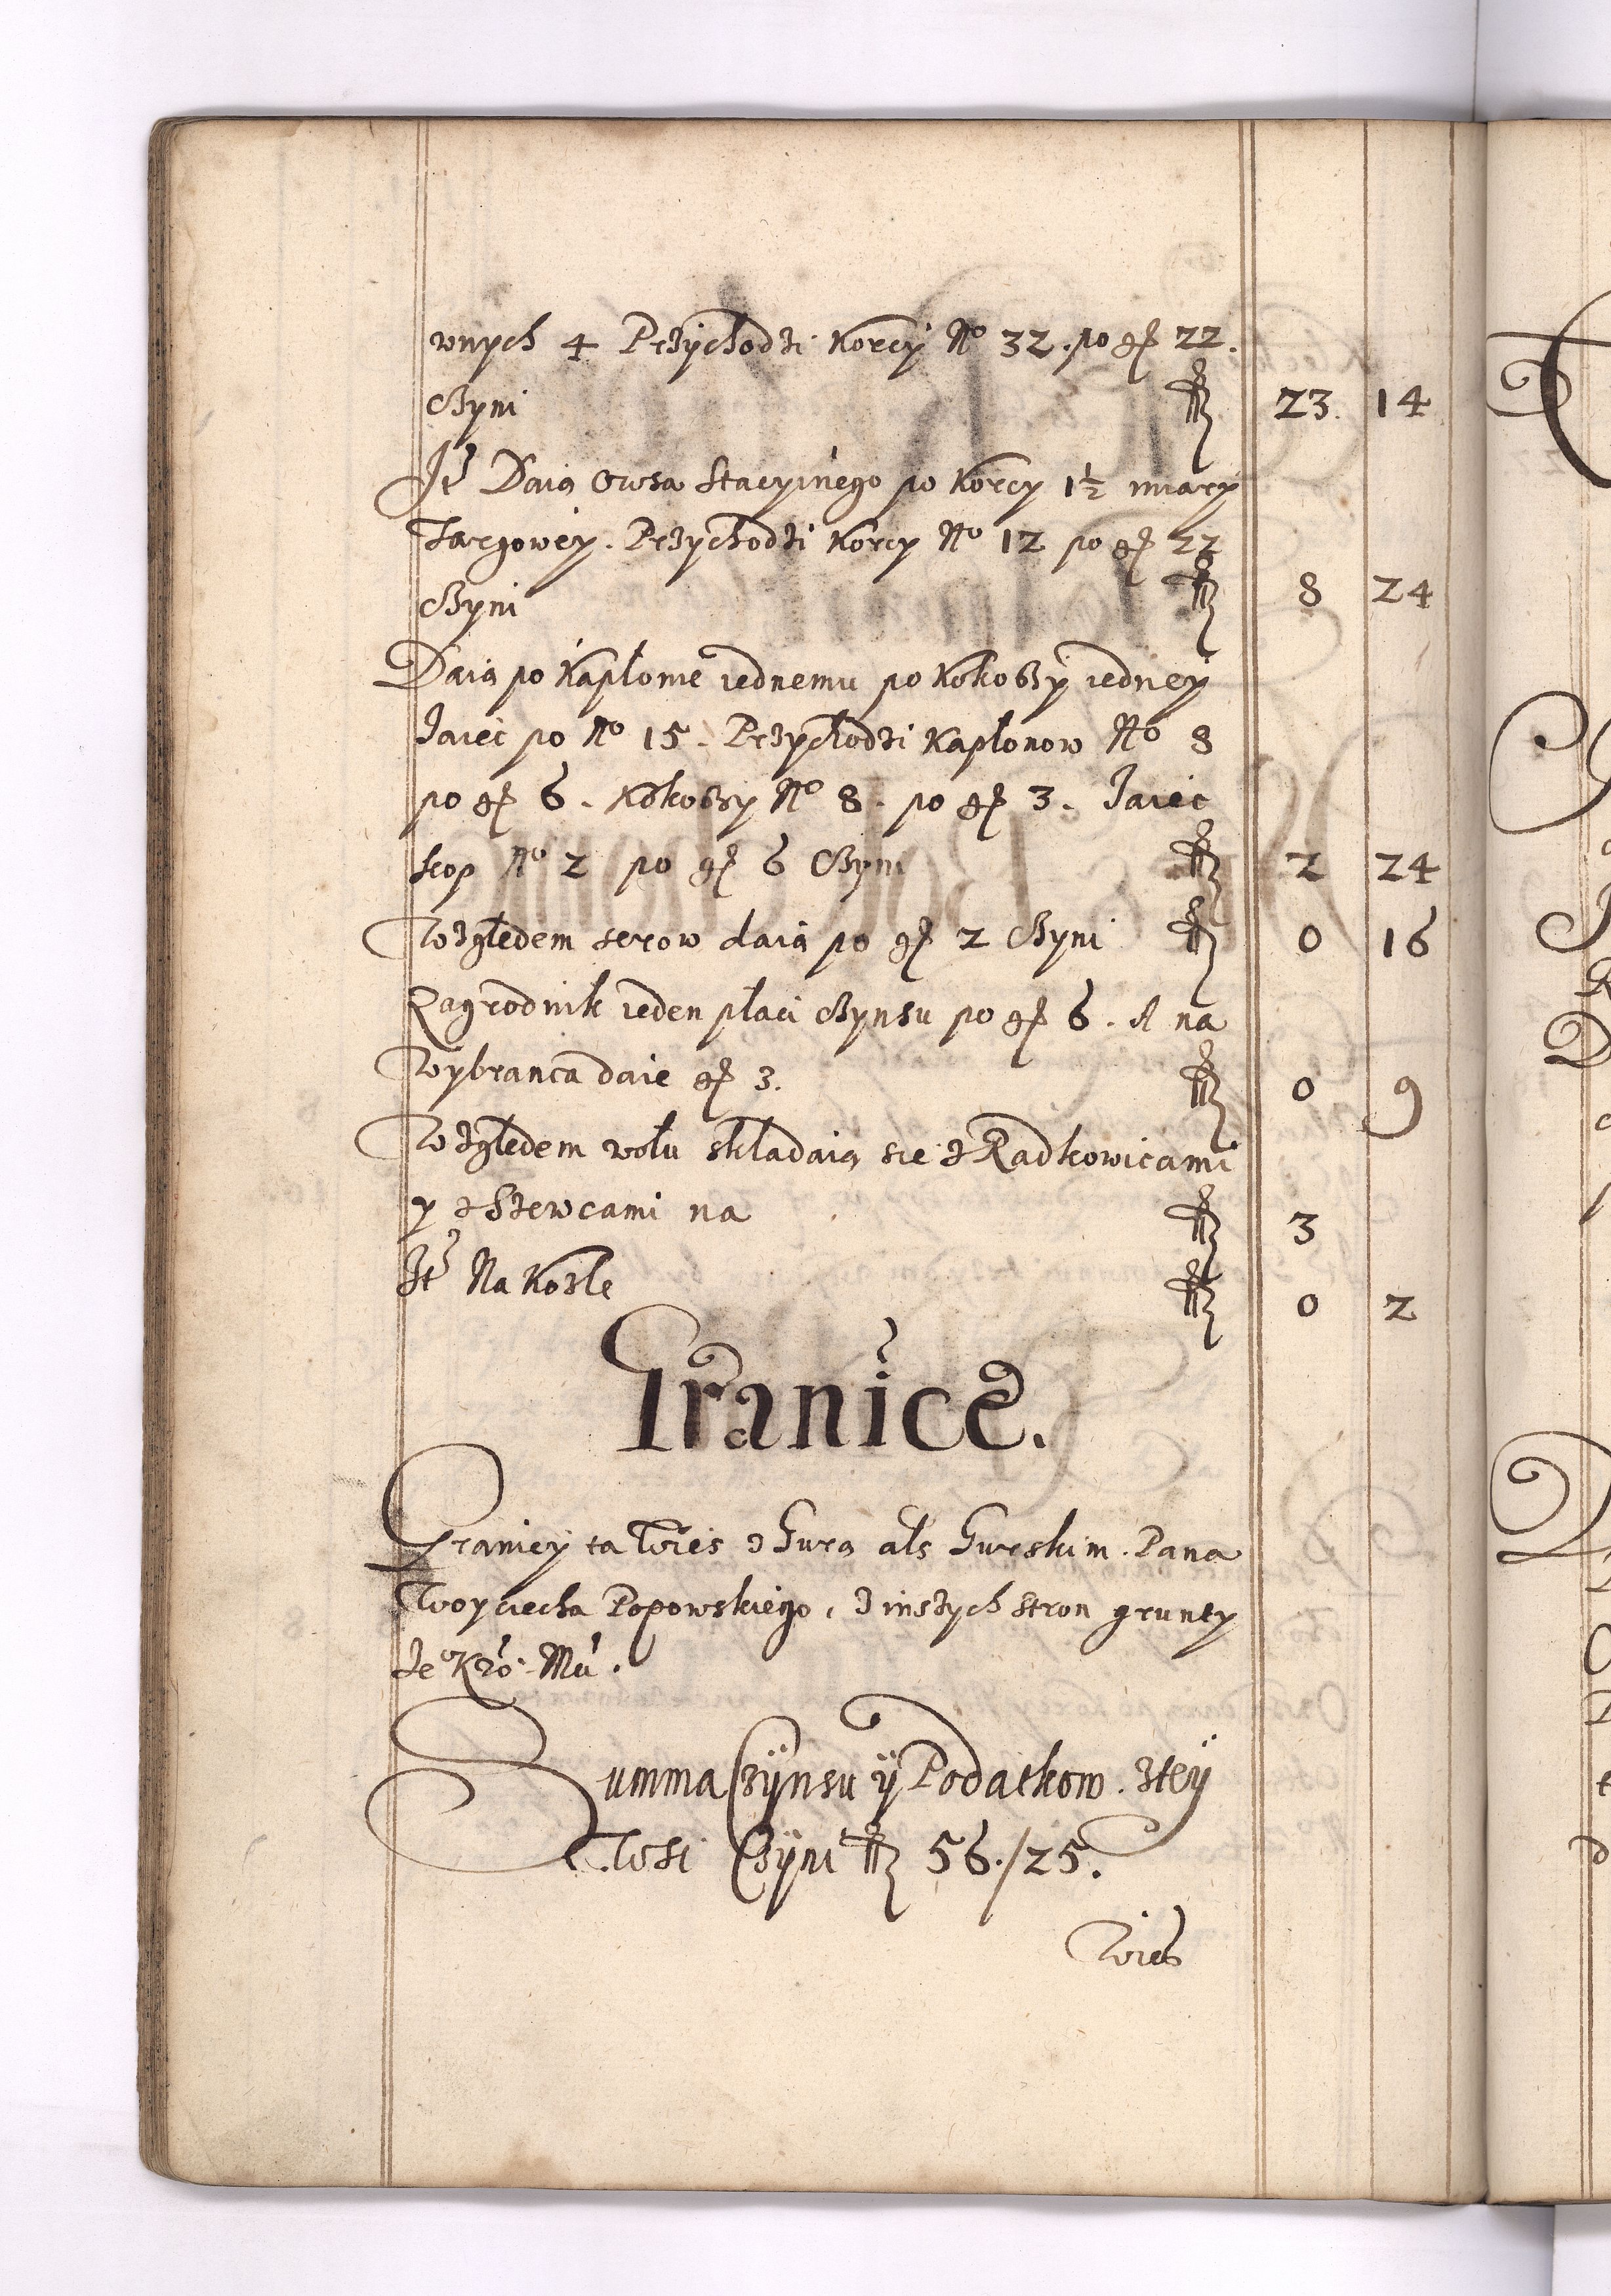 wnych 4 Przychodzi Korcy No 32. po gr 22.
Czyni fl 23. 14
It Daią Owsa Stacyinego po Korcy 1½ miary
Targowey. Przychodzi Korcy No 12 po gr 22
Czyni fl 8 24
Daią po Kapłonie iednemu po Kokoszy iedney
Jaiec po No 15. Przychodzi Kapłonow No 8
po gr 6. Kokoszy No 8. po gr 3. Jaiec
kop No 2 po gr 6 Czyni fl 2 24
Względem serow daią po gr 2 Czyni fl 0 16
Zagrodnik ieden płaci Czynsu po gr 6. A na
Wybranca daie gr 3. fl 0 9
Względem wołu składaią sie z Radkowicami
y z Szewcami na fl 3
It Na Kozle fl 0 2
Granice.
Graniczy ta Wies z Gurą als Gurskim. Pana
Woyciecha Popowskiego, z inszych stron grunty
Je Kró. Mći.
Summa Czÿnsu ÿ Podatkow. zteÿ
Wsi Czÿni fl 56./25.
Wies